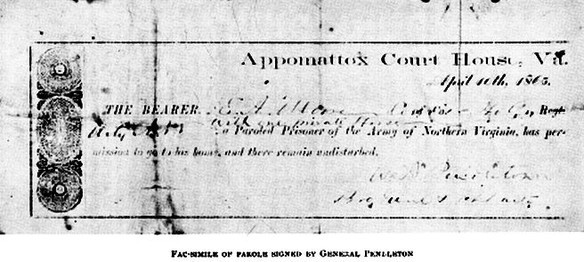 Appomattox Court House, Va.
April 10th, 1865.
THE BEARER, E. A. Moore Co of Regt.
a Paroled Prisoner of the Army of Northern Virginia, has per-
mission to go to his home, and there remain undisturbed.
W. N. Pendleton
FAC-SIMILE OF PAROLE SIGNED BY GENERAL PENDLETON